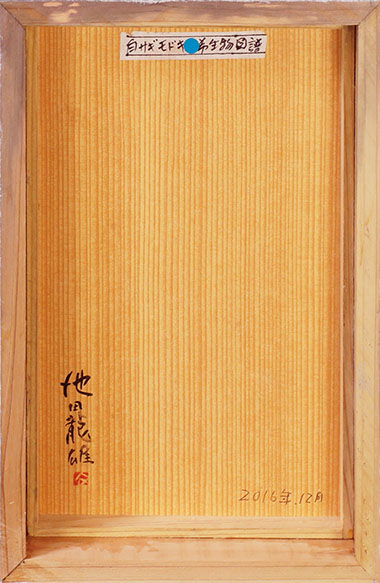 白サギモドキ 希生物図譜
池田龍雄
2016年.12月